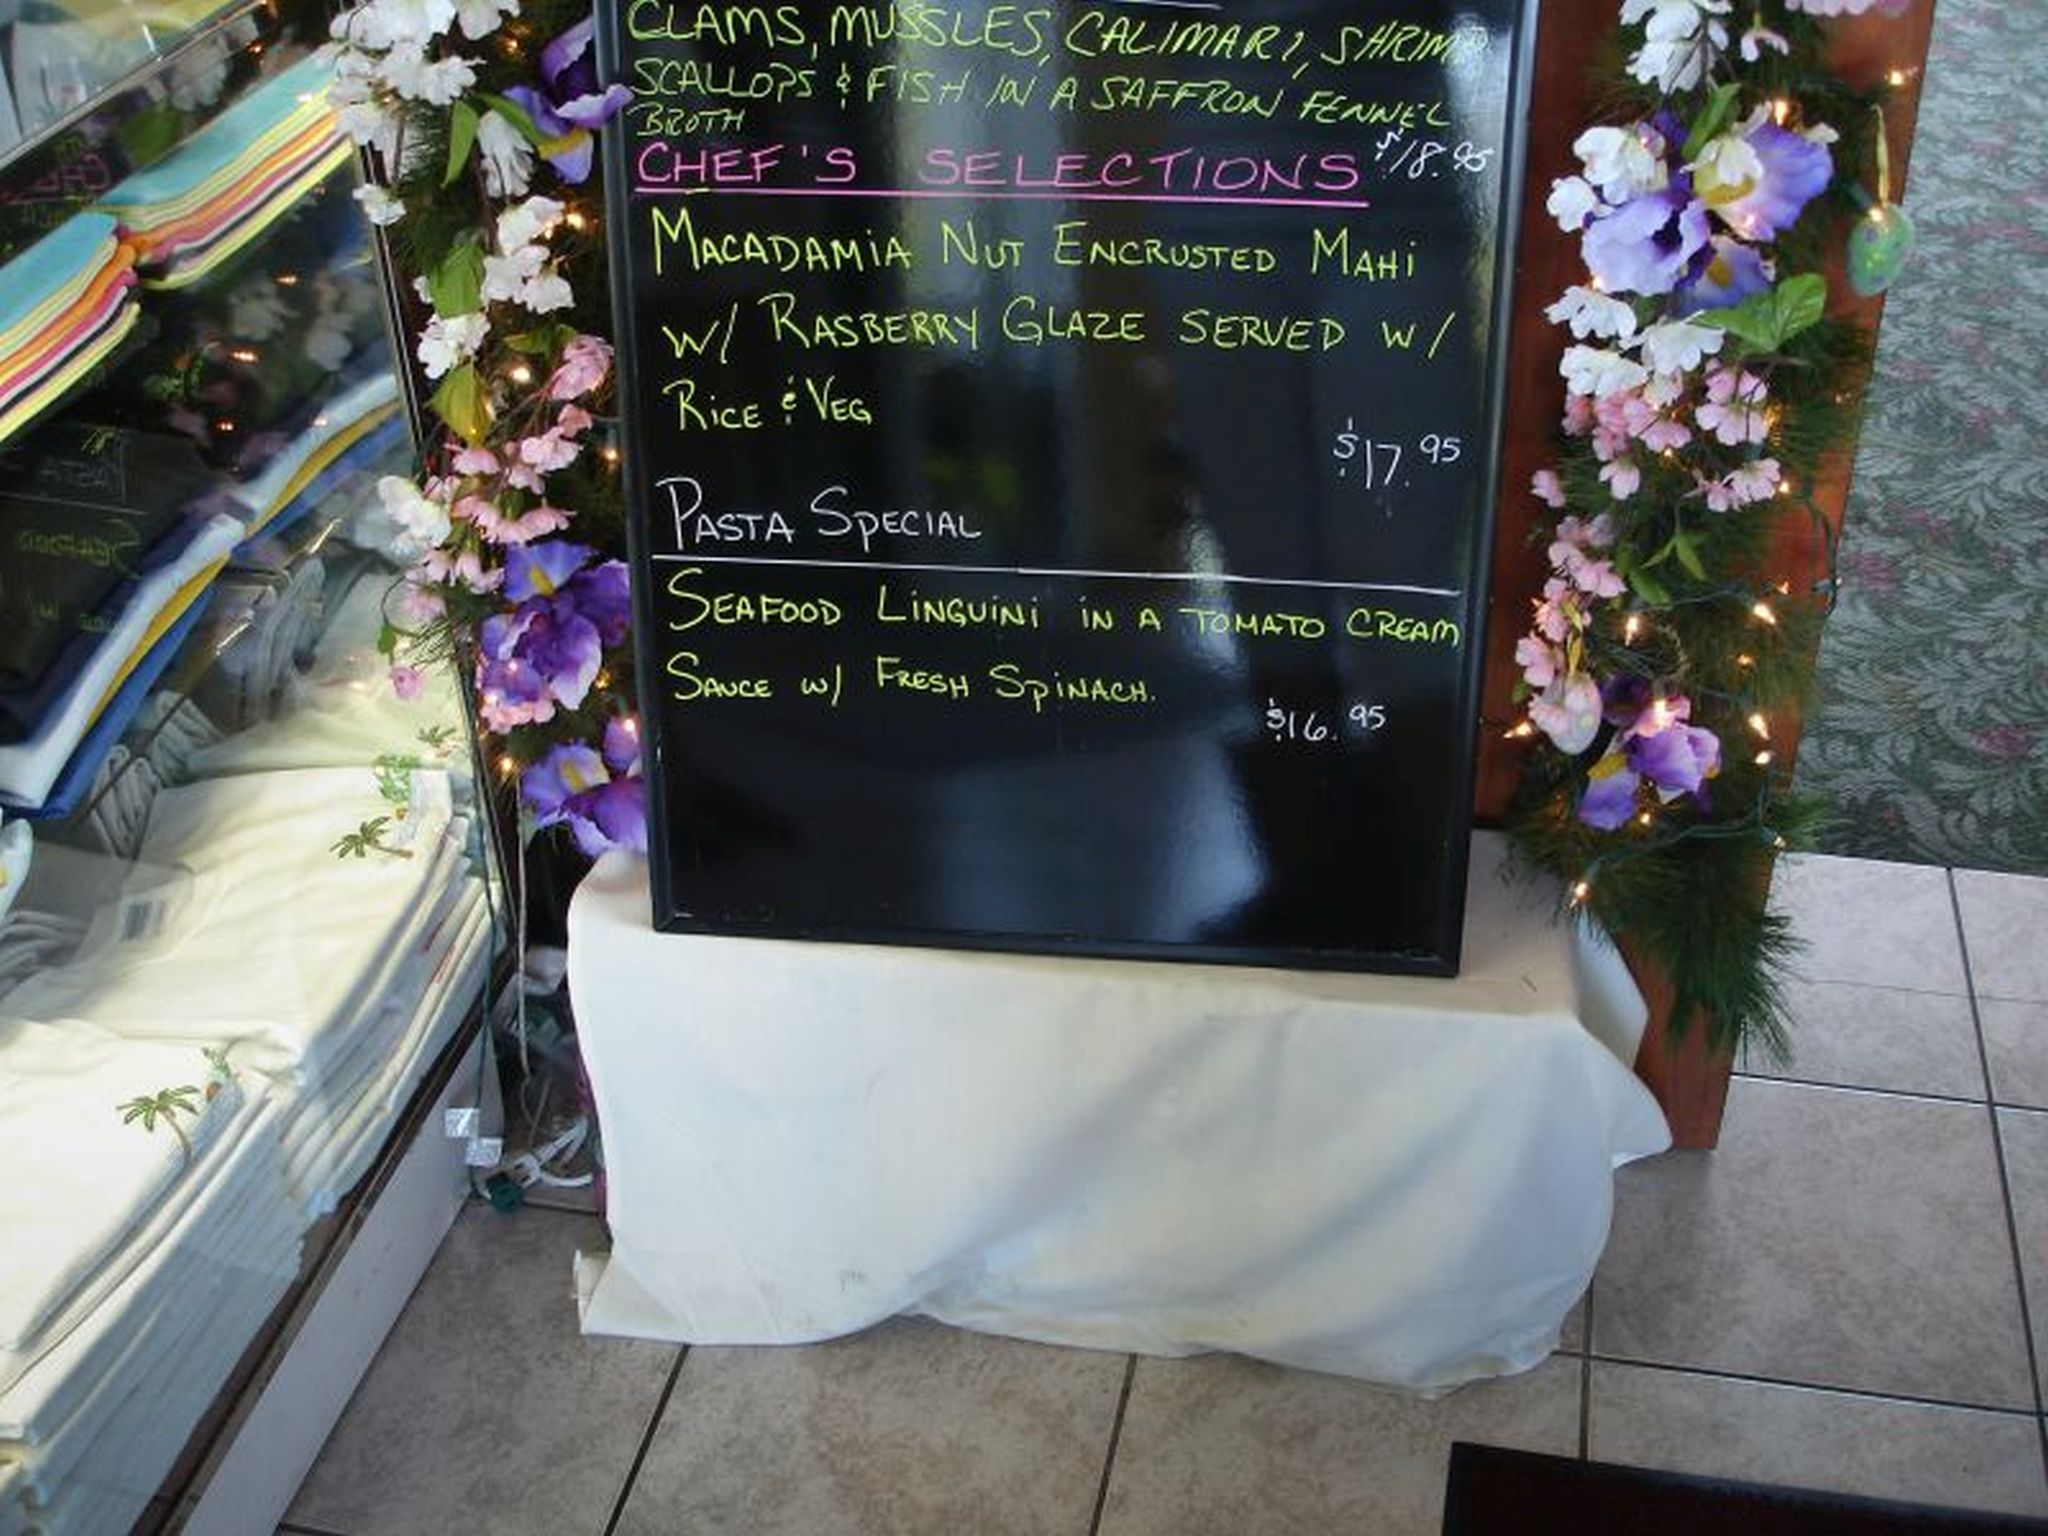 CLAMS, MUSSLES, CALIMARI, SHRIMP,
SCALLOPS & FISH IN A SAFFRON FENNEL
BROTH
$18.95
CHEF'S SELECTIONS
MACADAMIA NUT ENCRUSTED MAHI
W/ RASBERRY GLAZE SERVED W/
RICE & VEG
$17.95
PASTA SPECIAL
SEAFOOD LINGUINI IN A TOMATO CREAM
SAUCE W/ FRESH SPINACH.
$16.95